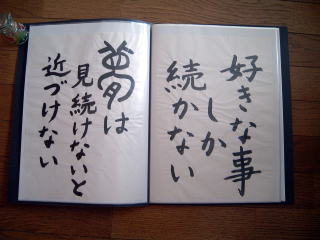 好きな事
しか
続かない
夢は
見続けないと
近づけない